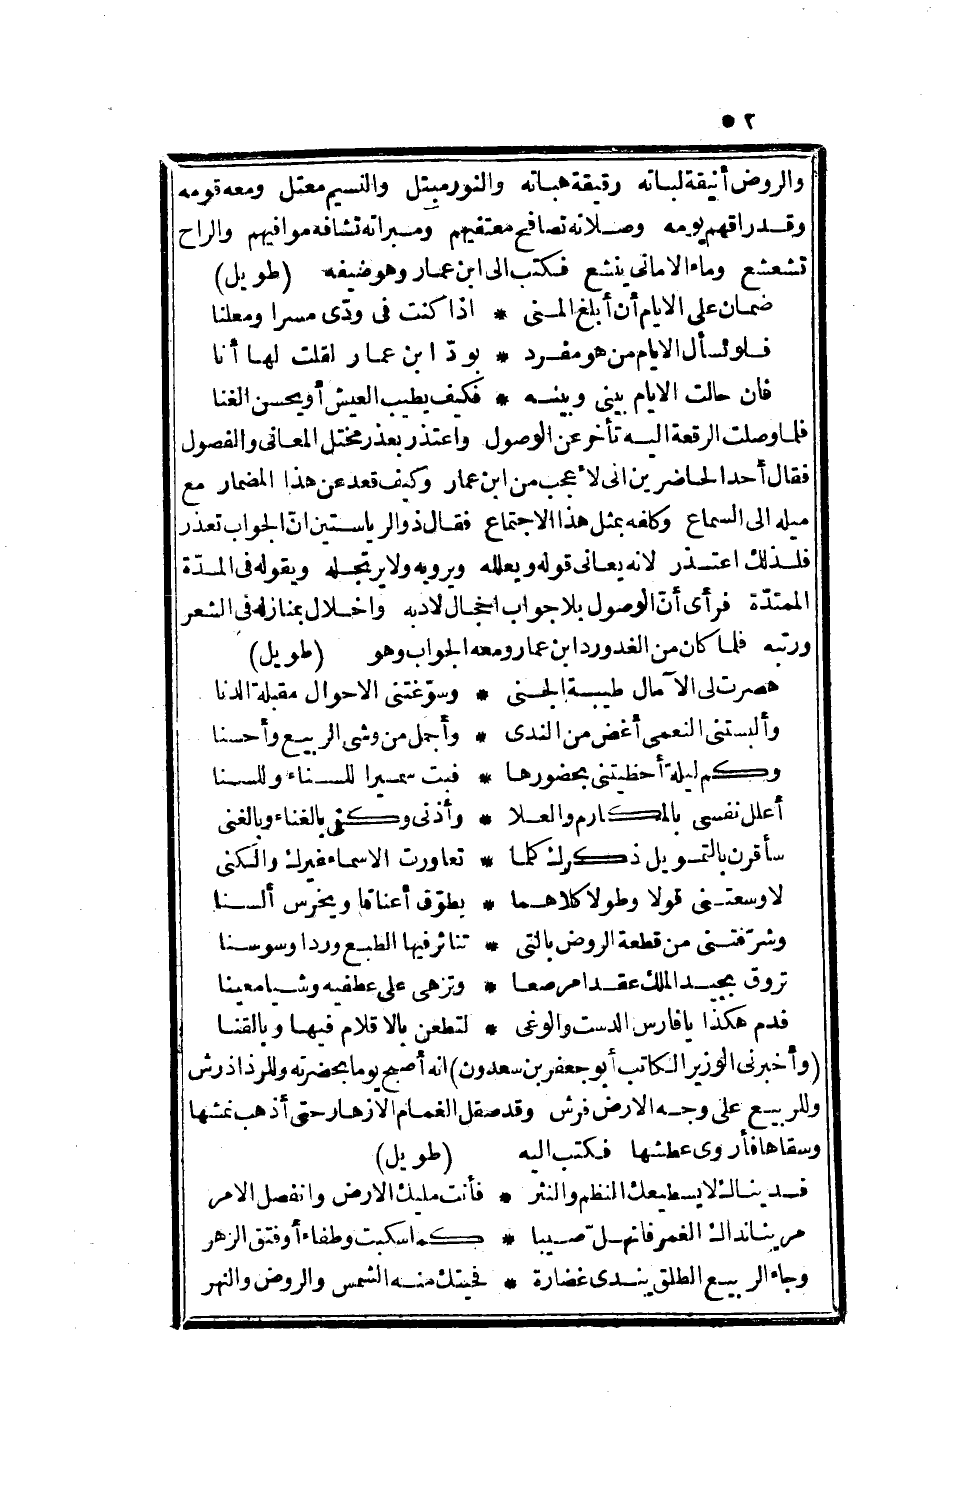 ٥٢
والروض أنيقة لباته رقيقة هباته والنور مبتل والنسيم معتل ومعه قومه
وقد راقهم يومه وصلاته تصافح معتفيهم ومبراته تشافه موافيهم والراح
تشعشع وماء الامانى ينشع فكتب الى ابن عمار وهو ضيفه (طويل)
ضمان على الايام أن أبلغ المنى * اذا كنت فى ودّى مسرا ومعلنا
فلو تسأل الايام من هو مفرد * بودّ ابن عمار لقلت لها أنا
فان حالت الايام بينى وبينه * فكيف يطيب العيش أو يحسن الغنا
فلما وصلت الرقعة اليه تأخر عن الوصول واعتذر بعذر مختل المعانى والفصول
فقال أحد الحاضرين انى لأعجب من ابن عمار وكيف قعد عن هذا المضمار مع
ميله الى السماع وكلفه بمثل هذا الاجتماع فقال ذو الرياستين انّ الجواب تعذر
فلذلك اعتذر لانه يعانى قوله ويعلله ويرويه ولا يرتجله ويقوله فى المدّة
الممتدّة فرأى أنّ الوصول بلا جواب اخجال لادبه واخلال بمنازله فى الشعر
ورتبه فلما كان من الغد ورد ابن عمار ومعه الجواب وهو (طويل)
هصرت لى الآمال طيبة الجنى * وسوّغتنى الاحوال مقبلة الدنا
وألبستنى النعمى أغض من الندى * وأجمل من وشى الربيع وأحسنا
وكم ليلة أحظيتنى بحضورها * فبت سميرا للسناء وللسنا
أعلل نفسى بالمكارم والعلا * وأذنى وكفى بالغناء وبالغنى
سأقرن بالتمويل ذكرك كلما * تعاورت الاسماء غيرك والكنى
لاوسعتنى قولا وطولا كلاهما * يطوّق أعناقا ويخرس ألسنا
وشرّفتنى من قطعة الروض بالتى * تناثر فيها الطبع وردا وسوسنا
تروق بجيد الملك عقدا مرصعا * وتزهى على عطفيه وشيا معينا
فدم هكذا يا فارس الدست والوغى * لتطعن بالاقلام فيها وبالقنا
(وأخبرنى الوزير الكاتب أبو جعفر بن سعدون) انه أصبح يوما بحضرته وللرذاذ رش
وللربيع على وجه الارض فرش وقد صقل الغمام الازهار حتى أذهب نمشها
وسقاها فأروى عطشها فكتب اليه (طويل)
فديناك لا يسطيعك النظم والنثر * فأنت مليك الارض وانفصل الامر
مرينا نداك الغمر فانهلّ صيبا * كما سكبت وطفاء أو فتق الزهر
وجاء الربيع الطلق يندى غضارة * فحيتك منه الشمس والروض والنهر